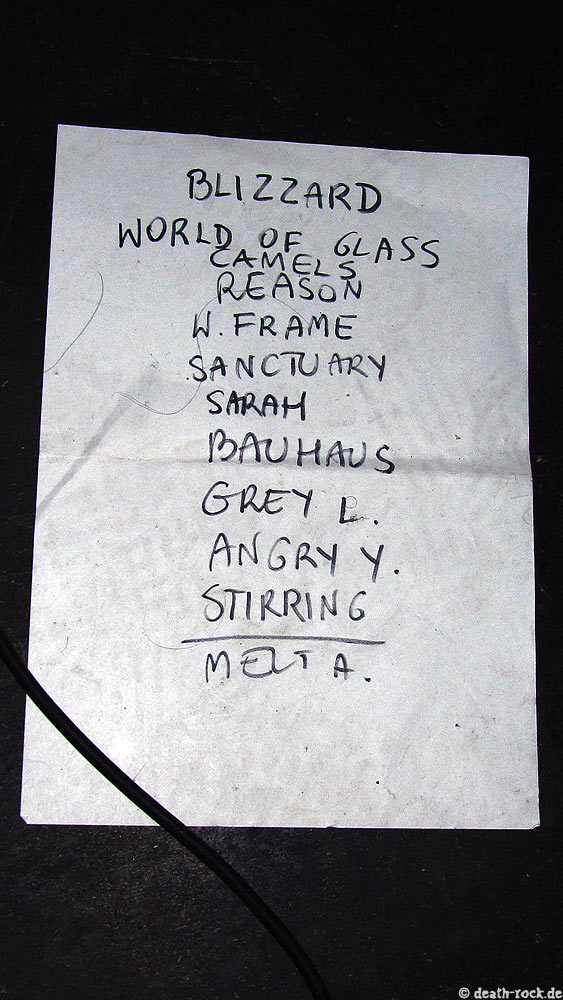 BLIZZARD
WORLD OF GLASS
CAMELS
REASON
W. FRAME
SANCTUARY
SARAH
BAUHAUS
GREY L.
ANGRY Y.
STIRRING
MELT A.
© death-rock.de